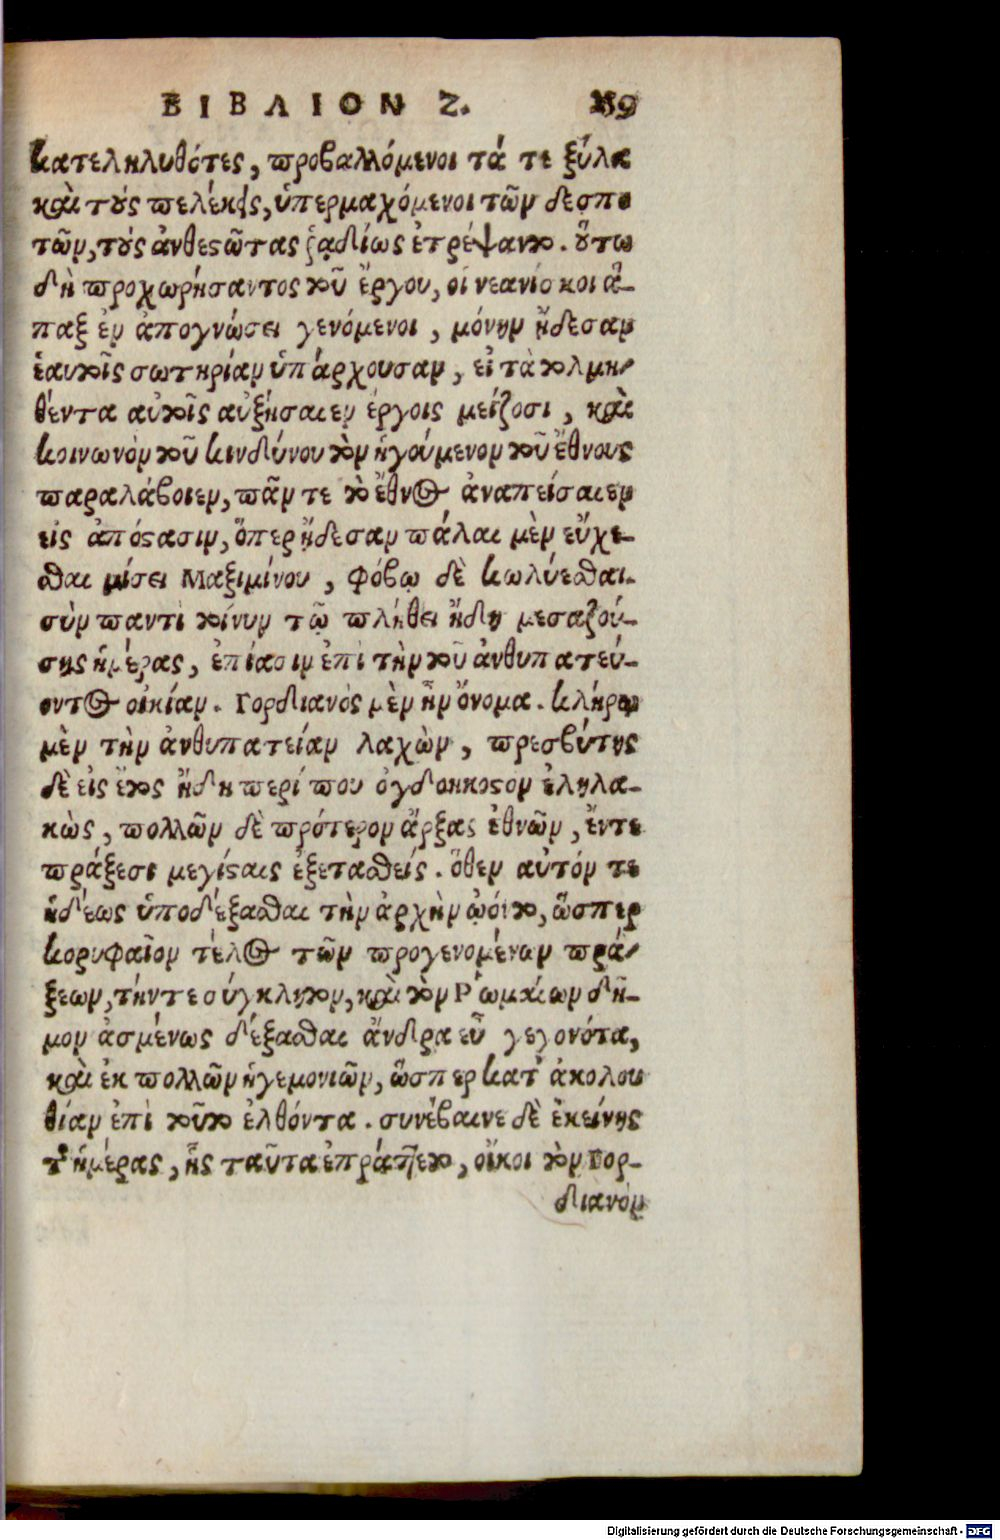 ΒΙΒΛΙΟΝ Ζ. 159
κατεληλυθότες, προβαλλόμενοι τά τε ξύλα
καὶ τοὺς πελέκεις, ὑπερμαχόμενοι τῶν δεσπο
τῶν, τοὺς ἀνθεστῶτας ῥᾳδίως ἐτρέψαντο. οὕτω
δὴ προχωρήσαντος τοῦ ἔργου, οἱ νεανίσκοι ἅ-
παξ ἐν ἀπογνώσει γενόμενοι, μόνην ᾔδεσαν
ἑαυτοῖς σωτηρίαν ὑπάρχουσαν, εἰ τὰ τολμη-
θέντα αὐτοῖς αὐξήσαιεν ἔργοις μείζοσι, καὶ
κοινωνὸν τοῦ κινδύνου τὸν ἡγούμενον τοῦ ἔθνους
παραλάβοιεν, πᾶν τε τὸ ἔθνος ἀναπείσαιεν
εἰς ἀπόστασιν, ὅπερ ᾔδεσαν πάλαι μὲν εὔχε-
σθαι μίσει Μαξιμίνου, φόβῳ δὲ κωλύεσθαι.
σὺν παντὶ τοίνυν τῷ πλήθει ἤδη μεσαζού-
σης ἡμέρας, ἐπίασιν ἐπὶ τὴν τοῦ ἀνθυπατεύ-
οντος οἰκίαν. Γορδιανὸς μὲν ἦν ὄνομα. κλήρῳ
μὲν τὴν ἀνθυπατείαν λαχὼν, πρεσβύτης
δὲ εἰς ἔτος ἤδη περί που ὀγδοηκοστὸν ἐληλα-
κὼς, πολλῶν δὲ πρότερον ἄρξας ἐθνῶν, ἔν τε
πράξεσι μεγίσταις ἐξετασθείς. ὅθεν αὐτόν τε
ἡδέως ὑποδέξασθαι τὴν ἀρχὴν ᾤοντο, ὥσπερ
κορυφαῖον τέλος τῶν προγενομένων πρά-
ξεων, τήν τε σύγκλητον, καὶ τὸν Ῥωμαίων δῆ-
μον ἀσμένως δέξασθαι ἄνδρα εὖ γεγονότα,
καὶ ἐκ πολλῶν ἡγεμονιῶν, ὥσπερ κατ' ἀκολου
θίαν ἐπὶ τοῦτο ἐλθόντα. συνέβαινε δὲ ἐκείνης
τῆς ἡμέρας, ἧς ταῦτα ἐπράττετο, οἴκοι τὸν Γορ-
διανὸν
Digitalisierung gefördert durch die Deutsche Forschungsgemeinschaft - DFG